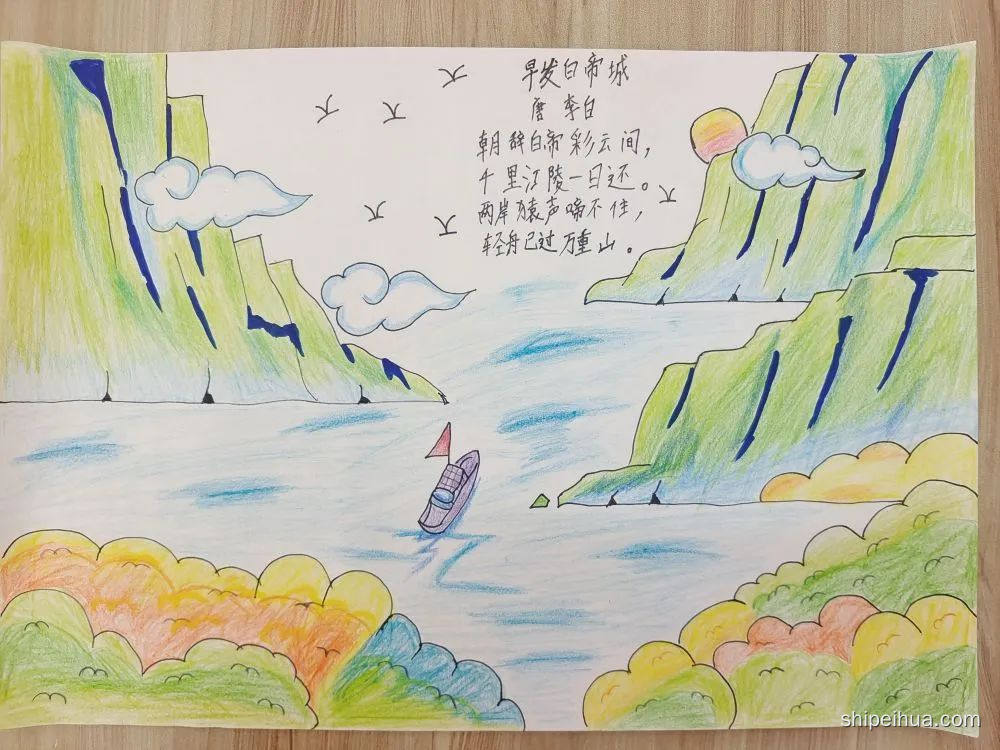 早发白帝城
唐 李白
朝辞白帝彩云间，
千里江陵一日还。
两岸猿声啼不住，
轻舟已过万重山。
shipeihua.com